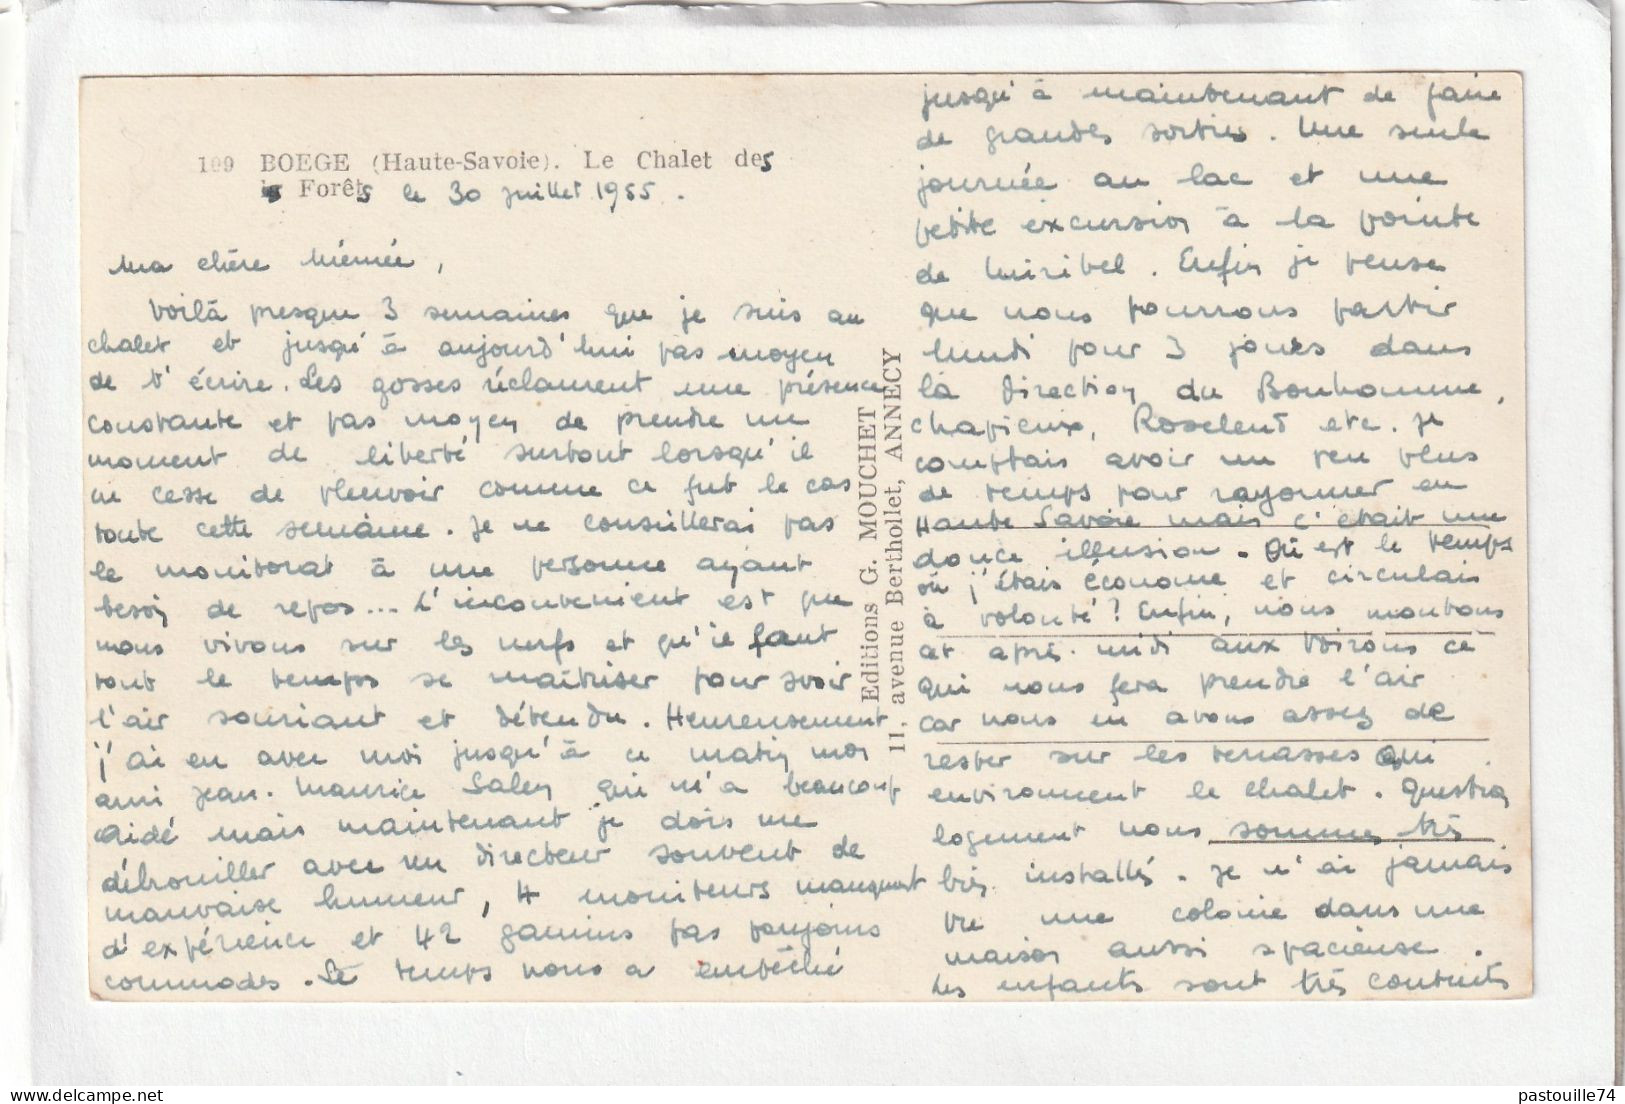 109 BOEGE (Haute-Savoie). Le Chalet des
Forêts le 30 juillet 1955.
Ma chère Mémée,
Voilà presque 3 semaines que je suis au
chalet et jusqu'à aujourd'hui pas moyen
de t'écrire. Les gosses réclament une présence
constante et pas moyen de prendre un
moment de liberté surtout lorsqu'il
ne cesse de pleuvoir comme ce fut le cas
toute cette semaine. Je ne conseillerai pas
le monitorat à une personne ayant
besoin de repos... L'inconvenient est que
nous vivons sur les nerfs et qu'il faut
tout le temps se maîtriser pour avoir
l'air souriant et détendu. Heureusement
j'ai eu avec moi jusqu'à ce matin mon
ami Jean-Maurice qui m'a beaucoup
aidé mais maintenant je dois me
débrouiller avec un directeur souvent de
mauvaise humeur, 4 moniteurs manquant
d'expérience et 42 gamins pas toujours
commodes. Le temps nous a empêché
Editions G. MOUCHET
11, avenue Berthollet, ANNECY
jusqu'à maintenant de faire
de grandes sorties. Une seule
journée au lac et une
petite excursion à la pointe
de Miribel. Enfin je pense
que nous pourrons partir
lundi pour 3 jours dans
la direction du Bonhomme,
Chapieux, Roselend etc. Je
comptais avoir un peu plus
de temps pour rayonner en
Haute Savoie mais c'était une
douce illusion. Où est le temps
où j'étais économe et circulais
à volonté? Enfin, nous montons
cet après-midi aux Voirons ce
qui nous fera prendre l'air
car nous en avons assez de
rester sur les terrasses qui
environnent le chalet. Question
logement nous sommes très
bien installés. Je n'ai jamais
vu une colonie dans une
maison aussi spacieuse.
Les enfants sont très contents
pastouille74